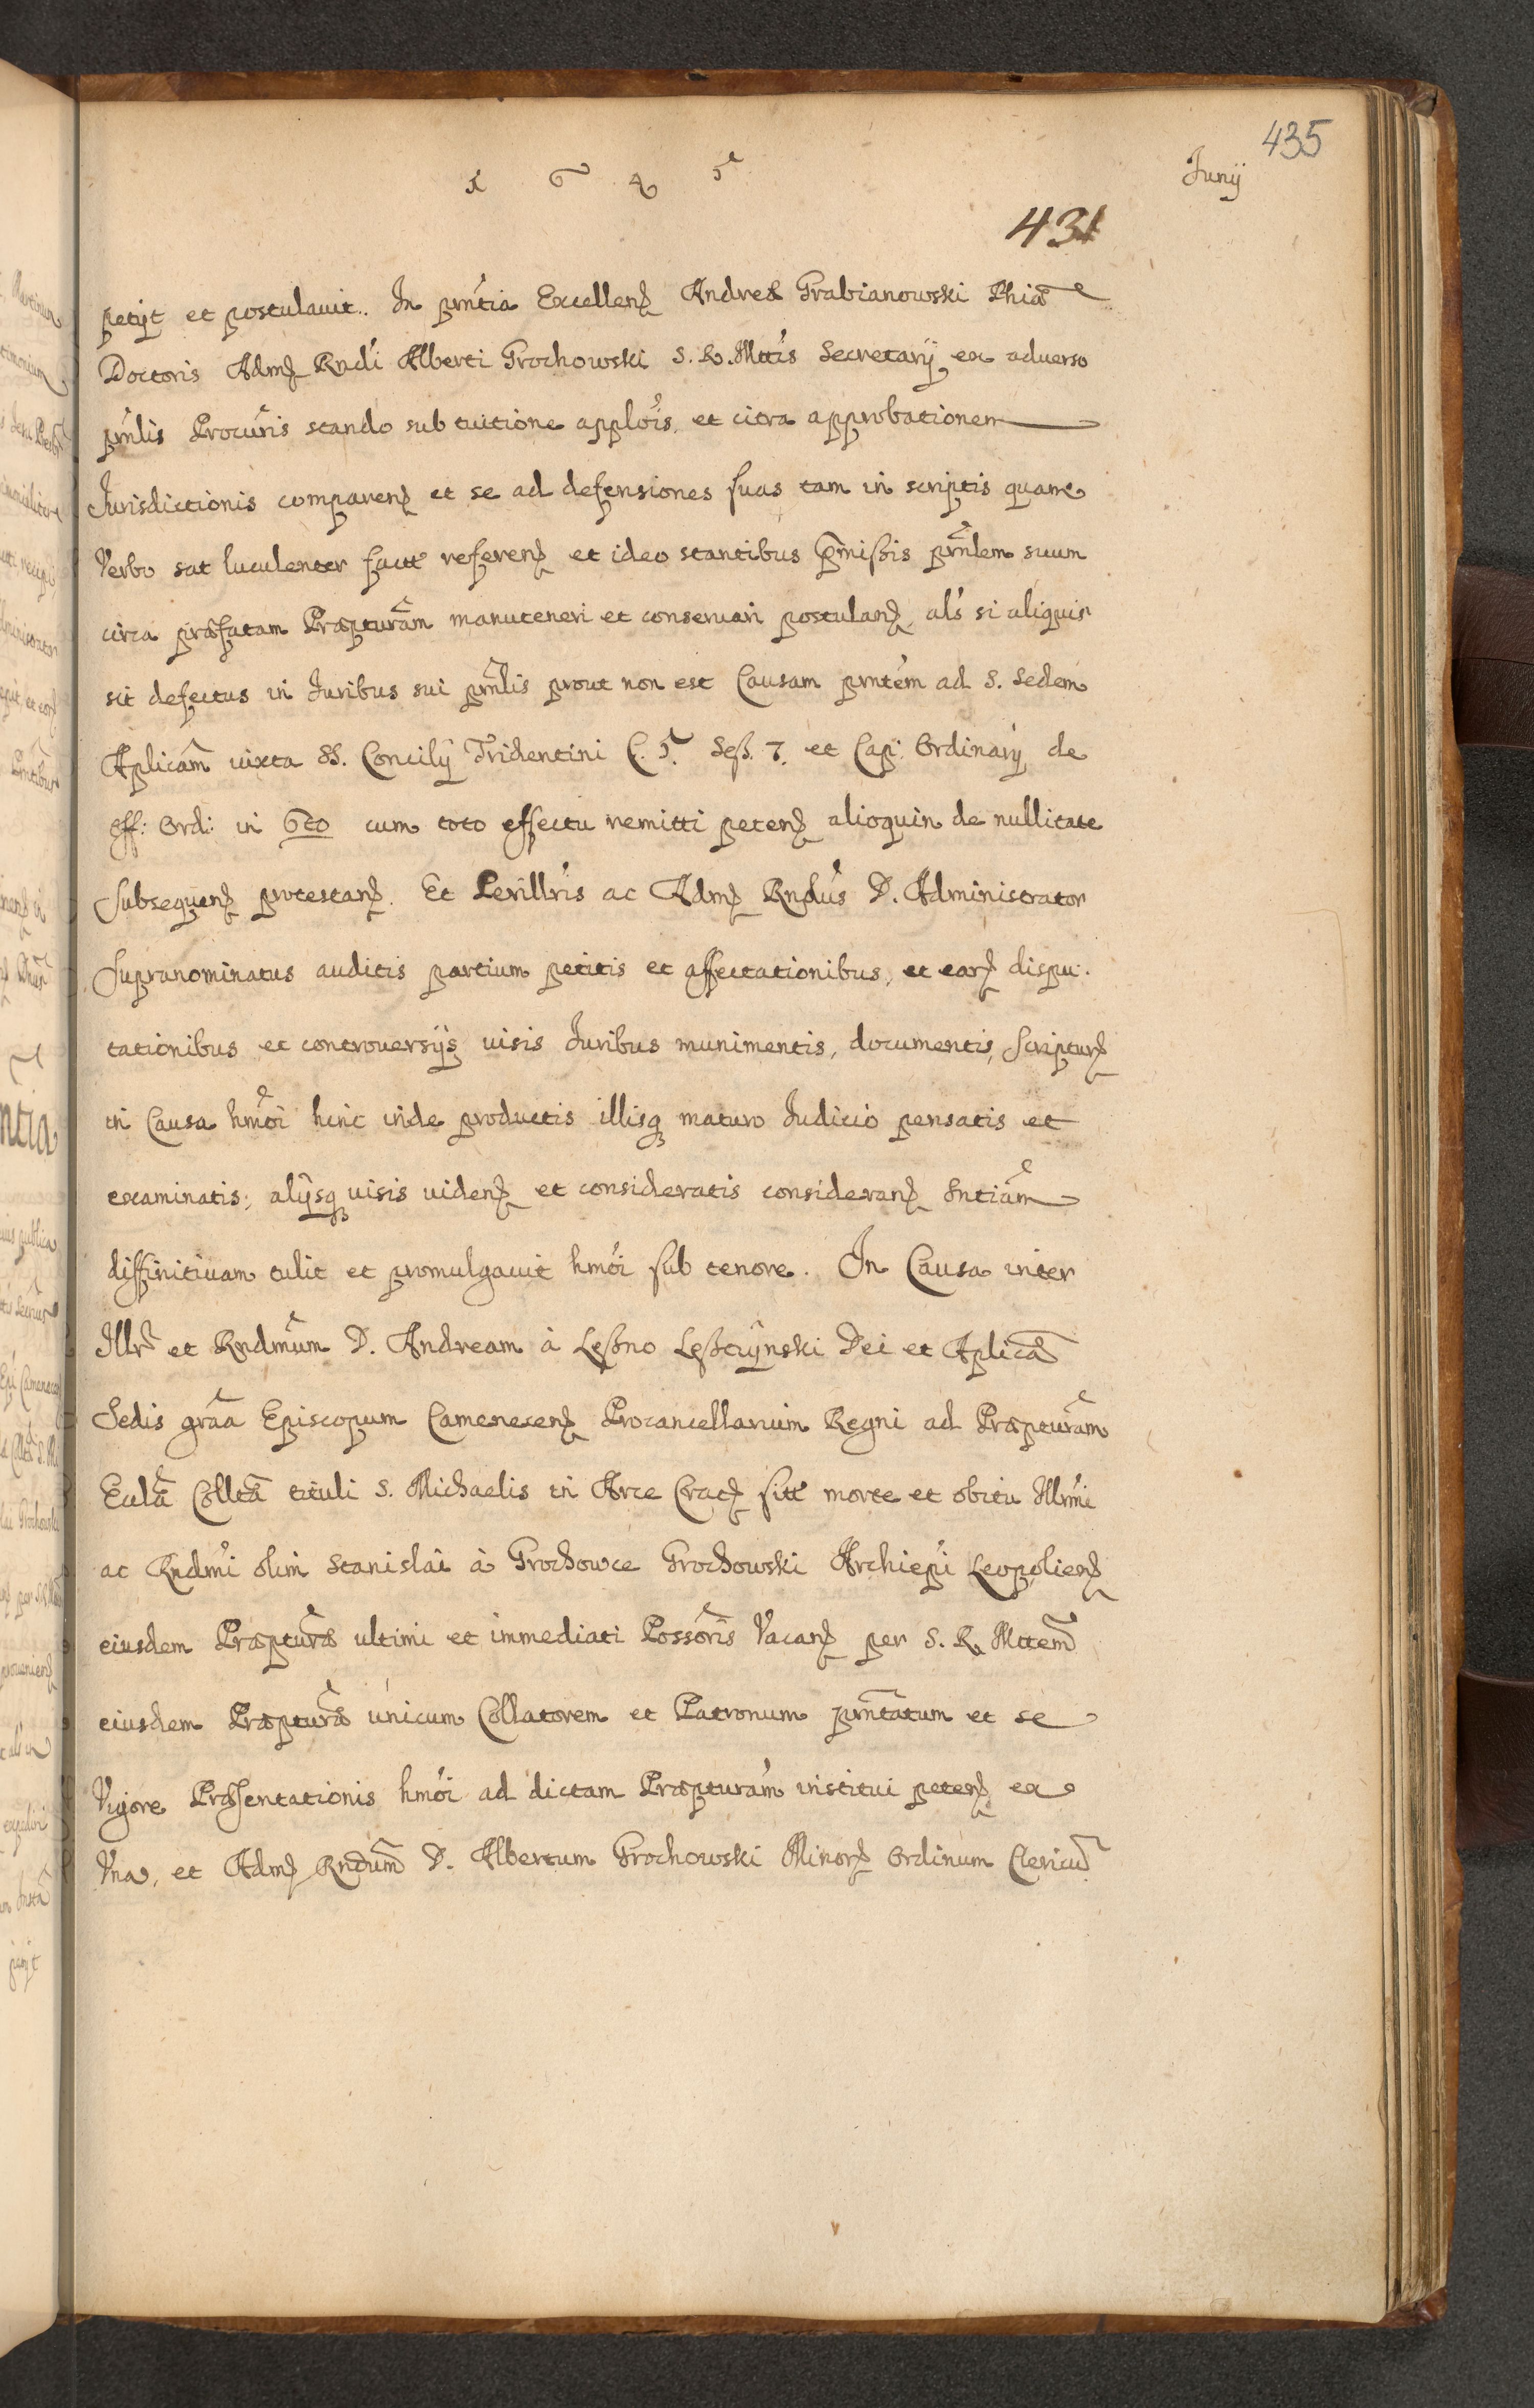 435
Junij
1 6 4 5
431
petijt et postulauit. In pnŕtia Excellenꝫ Andreæ Grabianowski Phiæ
Doctoris Admꝫ Rndi Alberti Grochowski S. R. Mttis Secretarij ex aduerso
prnlis Procuris stando sub tuitione applois, et citra approbationem
Jurisdictionis comparenꝫ et se ad defensiones suas tam in scriptis quam
Verbo sat luculenter factt referenꝫ et ideo stantibus pmissis prnlem suum
circa præfatam Præpturam manuteneri et conseruari postulanꝫ, als si aliquis
sit defectus in Juribus sui prnlis prout non est Causam prntem ad S. Sedem
Aplicam iuxta SS. Concilij Tridentini C. 5. Seß. 7. et Cap: Ordinarij de
off: Ordi: in 6to cum toto effectu remitti petenꝫ alioquin de nullitate
subsequenꝫ protestanꝫ. Et Perillris ac Admꝫ Rndus D. Administrator
supranominatus auditis partium petitis et affectationibus, et earꝫ dispu-
tationibus et controuersijs uisis Juribus munimentis, documentis, scripturꝫ
in Causa hmoi hinc inde productis illisqꝫ maturo Judicio pensatis et
examinatis, alijsqꝫ uisis uidenꝫ et consideratis consideranꝫ Sntiam
diffinitiuam tulit et promulgauit hmoi sub tenore. In Causa inter
Illr et Rndmum D. Andream à Leßno Leßczynski Dei et Aplicæ
Sedis graa Episcopum Camenecenꝫ Procancellarium Regni ad Præpturam
Eculæ Colltæ tituli S. Michaelis in Arce Cracꝫ sitt morte et obitu Illrmi
ac Rndmi olim Stanislai à Grochowce Grochowski Archiepi Leopolienꝫ
eiusdem Præpturæ ultimi et immediati Possoris Vacanꝫ per S. R. Mttem
eiusdem Præpturæ unicum Collatorem et Patronum prntatum et se
Vigore Præsentationis hmoi ad dictam Præpturam institui petenꝫ ex
Vna, et Admꝫ Rndum D. Albertum Grochowski Minorꝫ Ordinum Clericu